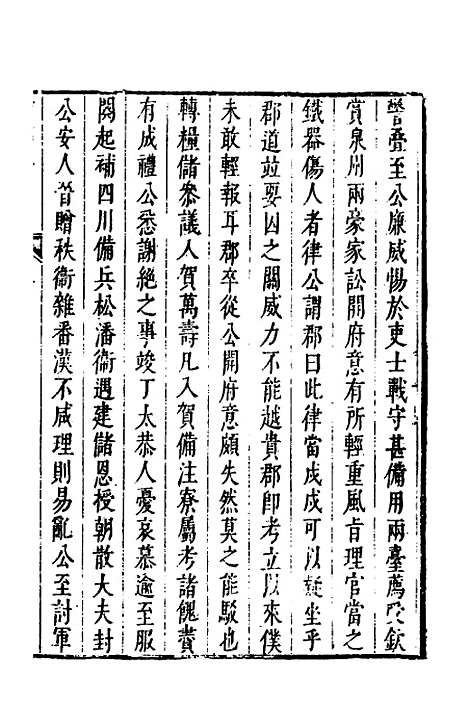 警疊至公廉威惕於吏士戰守甚備用兩臺薦受欽
賞泉州兩豪家訟開府意有所輕重風肯理官當之
鐵器傷人者律公謂郡曰此律當戍戍可以疑坐乎
郡道竝要囚之關威力不能越貴郡即考立以來僕
未敢輕報耳郡卒從公開府意頗失然莫之能駁也
轉糧儲叅議人賀萬壽凡入賀備注寮屬考諸餽賮
有成禮公悉謝絕之事竣丁太恭人憂哀慕逾至服
闋起補四川備兵松潘衞遇建儲恩授朝散大夫封
公安人晉贈秩衞雜番漢不咸理則易亂公至討軍